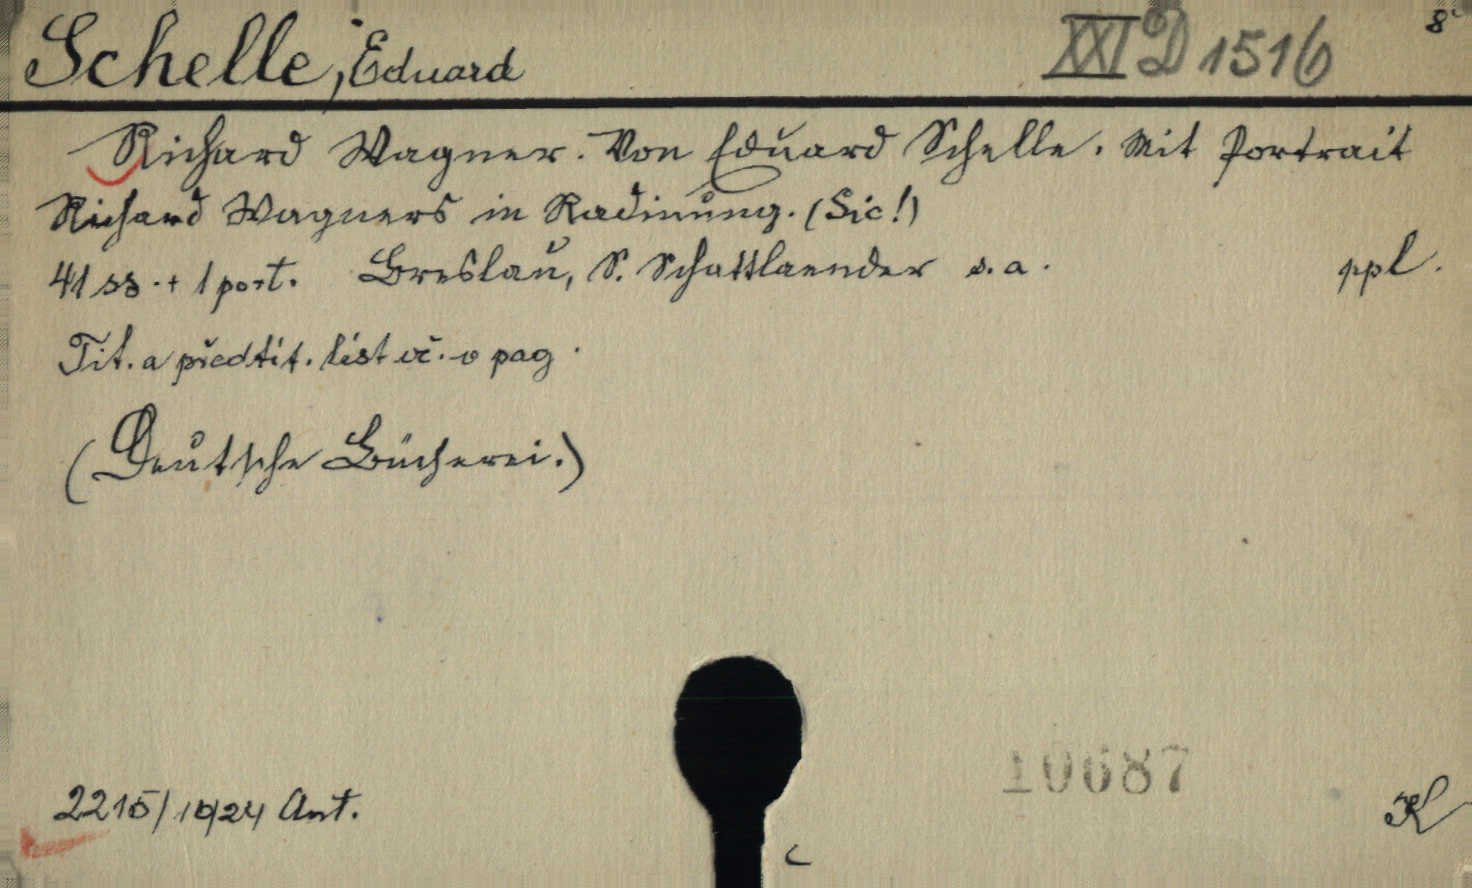 Schelle, Eduard XXI D 1516 8°
Richard Wagner. Von Eduard Schelle. Mit Portrait
Richard Wagners in Radinung. (Sic!)
41 ss. + 1 port. Breslau, S. Schottlaender s. a. ppl.
Tit. a předtit. list vč. v pag.
(Deutsche Bücherei.)
10687
2215/1924 Ant. K